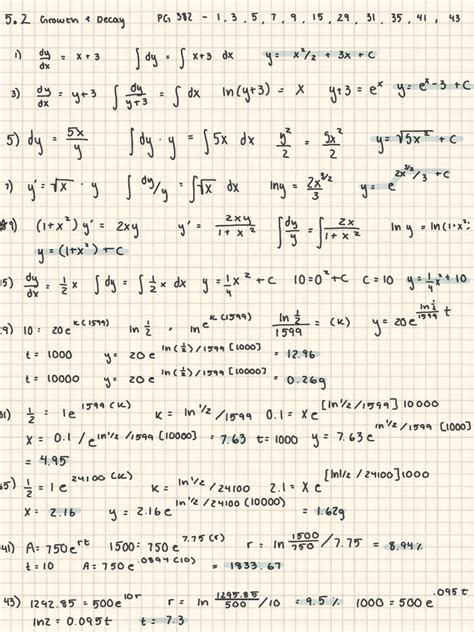 5.2 Growth & Decay PG 382 - 1, 3, 5, 7, 9, 15, 29, 31, 35, 41, 43
1) dy/dx = x + 3 ∫dy = ∫x+3 dx y = x²/2 + 3x + C
3) dy/dx = y+3 ∫ dy/y+3 = ∫ dx ln(y+3) = x y+3 = e^x y = e^x - 3 + C
5) dy = 5x/y ∫dy · y = ∫5x dx y²/2 = 5x²/2 y = √5x² + C
7) y' = √x · y ∫dy/y = ∫√x dx lny = 2x^3/2/3 y = e^2x^3/2/3 + C
9) (1+x²) y' = 2xy y' = 2xy/1+x² ∫dy/y = ∫2x/1+x² ln y = ln(1+x²)
y = (1+x²) + C
15) dy/dx = 1/2 x ∫dy = ∫1/2 x dx y = 1/4 x² + C 10 = 0² + C C = 10 y = 1/4 x² + 10
9) 10 = 20e^K(1599) ln 1/2 = ln e^K(1599) ln 1/2 / 1599 = (K) y = 20e^ln 1/2 / 1599 t
t = 1000 y = 20e^ln(1/2)/1599 [1000] = 12.96
t = 10000 y = 20e^ln(1/2)/1599 [10000] = 0.26g
31) 1/2 = 1e^1599(K) K = ln 1/2 /1599 0.1 = Xe^[ln 1/2 /1599] 10000
X = 0.1 / e^ln 1/2 /1599 [10000] = 7.63 t = 1000 y = 7.63e^[ln 1/2 /1599] 1000
= 4.95
35) 1/2 = 1e^24100 (K) K = ln 1/2 /24100 2.1 = Xe^[ln 1/2 /24100] 1000
X = 2.16 y = 2.16e^ln 1/2 /24100 (10000) = 1.62g
41) A = 750e^rt 1500 = 750e^7.75(r) r = ln 1500/750 /7.75 = 8.94%
t = 10 A = 750e^.0894(10) = 1833.67
43) 1292.85 = 500e^10r r = ln 1292.85/500 /10 = 9.5% 1000 = 500e^.095t
ln2 = 0.095t t = 7.3